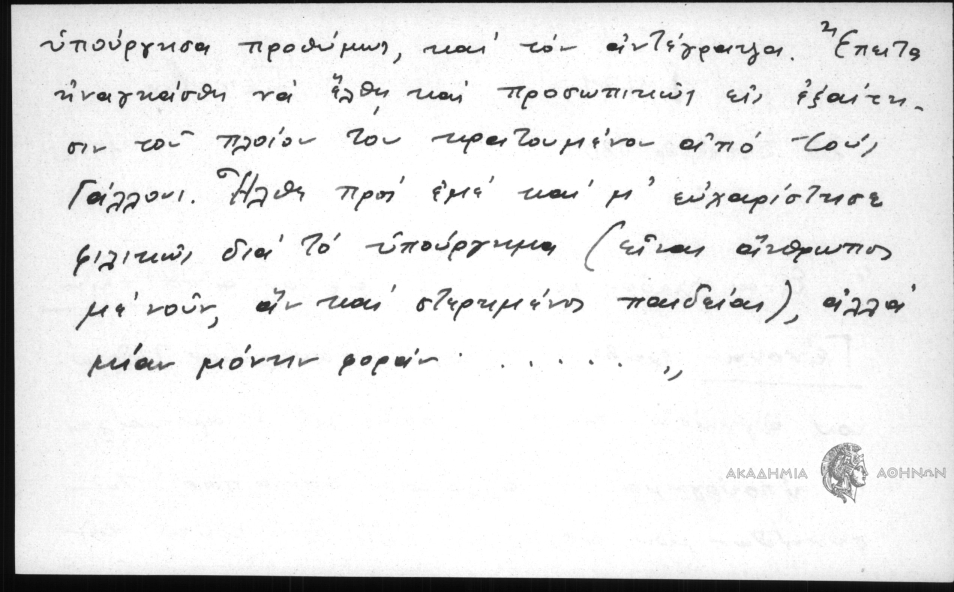 ὑπούργησα προθύμως, καὶ τὸν ἀντέγραψα. Ἔπειτα
ἠναγκάσθη νὰ ἔλθῃ καὶ προσωπικῶς εἰς ἐξαίτη-
σιν τοῦ πλοίου του κρατουμένου ἀπὸ τοὺς
Γάλλους. Ἦλθε πρὸς ἐμὲ καὶ μ' εὐχαρίστησε
φιλικῶς διὰ τὸ ὑπούργημα (εἶναι ἄνθρωπος
μὲ νοῦν, ἂν καὶ στερημένος παιδείας), ἀλλὰ
μίαν μόνην φορὰν . . . . . . . „
ΑΚΑΔΗΜΙΑ ΑΘΗΝΩΝ